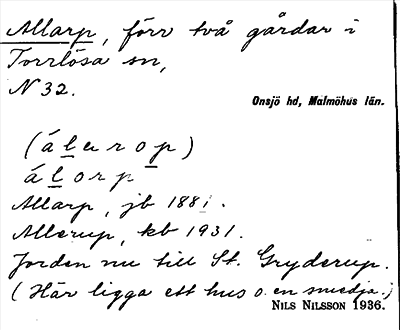 Allarp, förr två gårdar i
Torrlösa sn,
N 32.
Onsjö hd, Malmöhus län.
(á l a r o p)
á l o r p
Allarp, jb 1881.
Allerup, kb 1931.
Jorden nu till St. Gryderup.
(Här ligga ett hus o. en smedja.)
NILS NILSSON 1936.